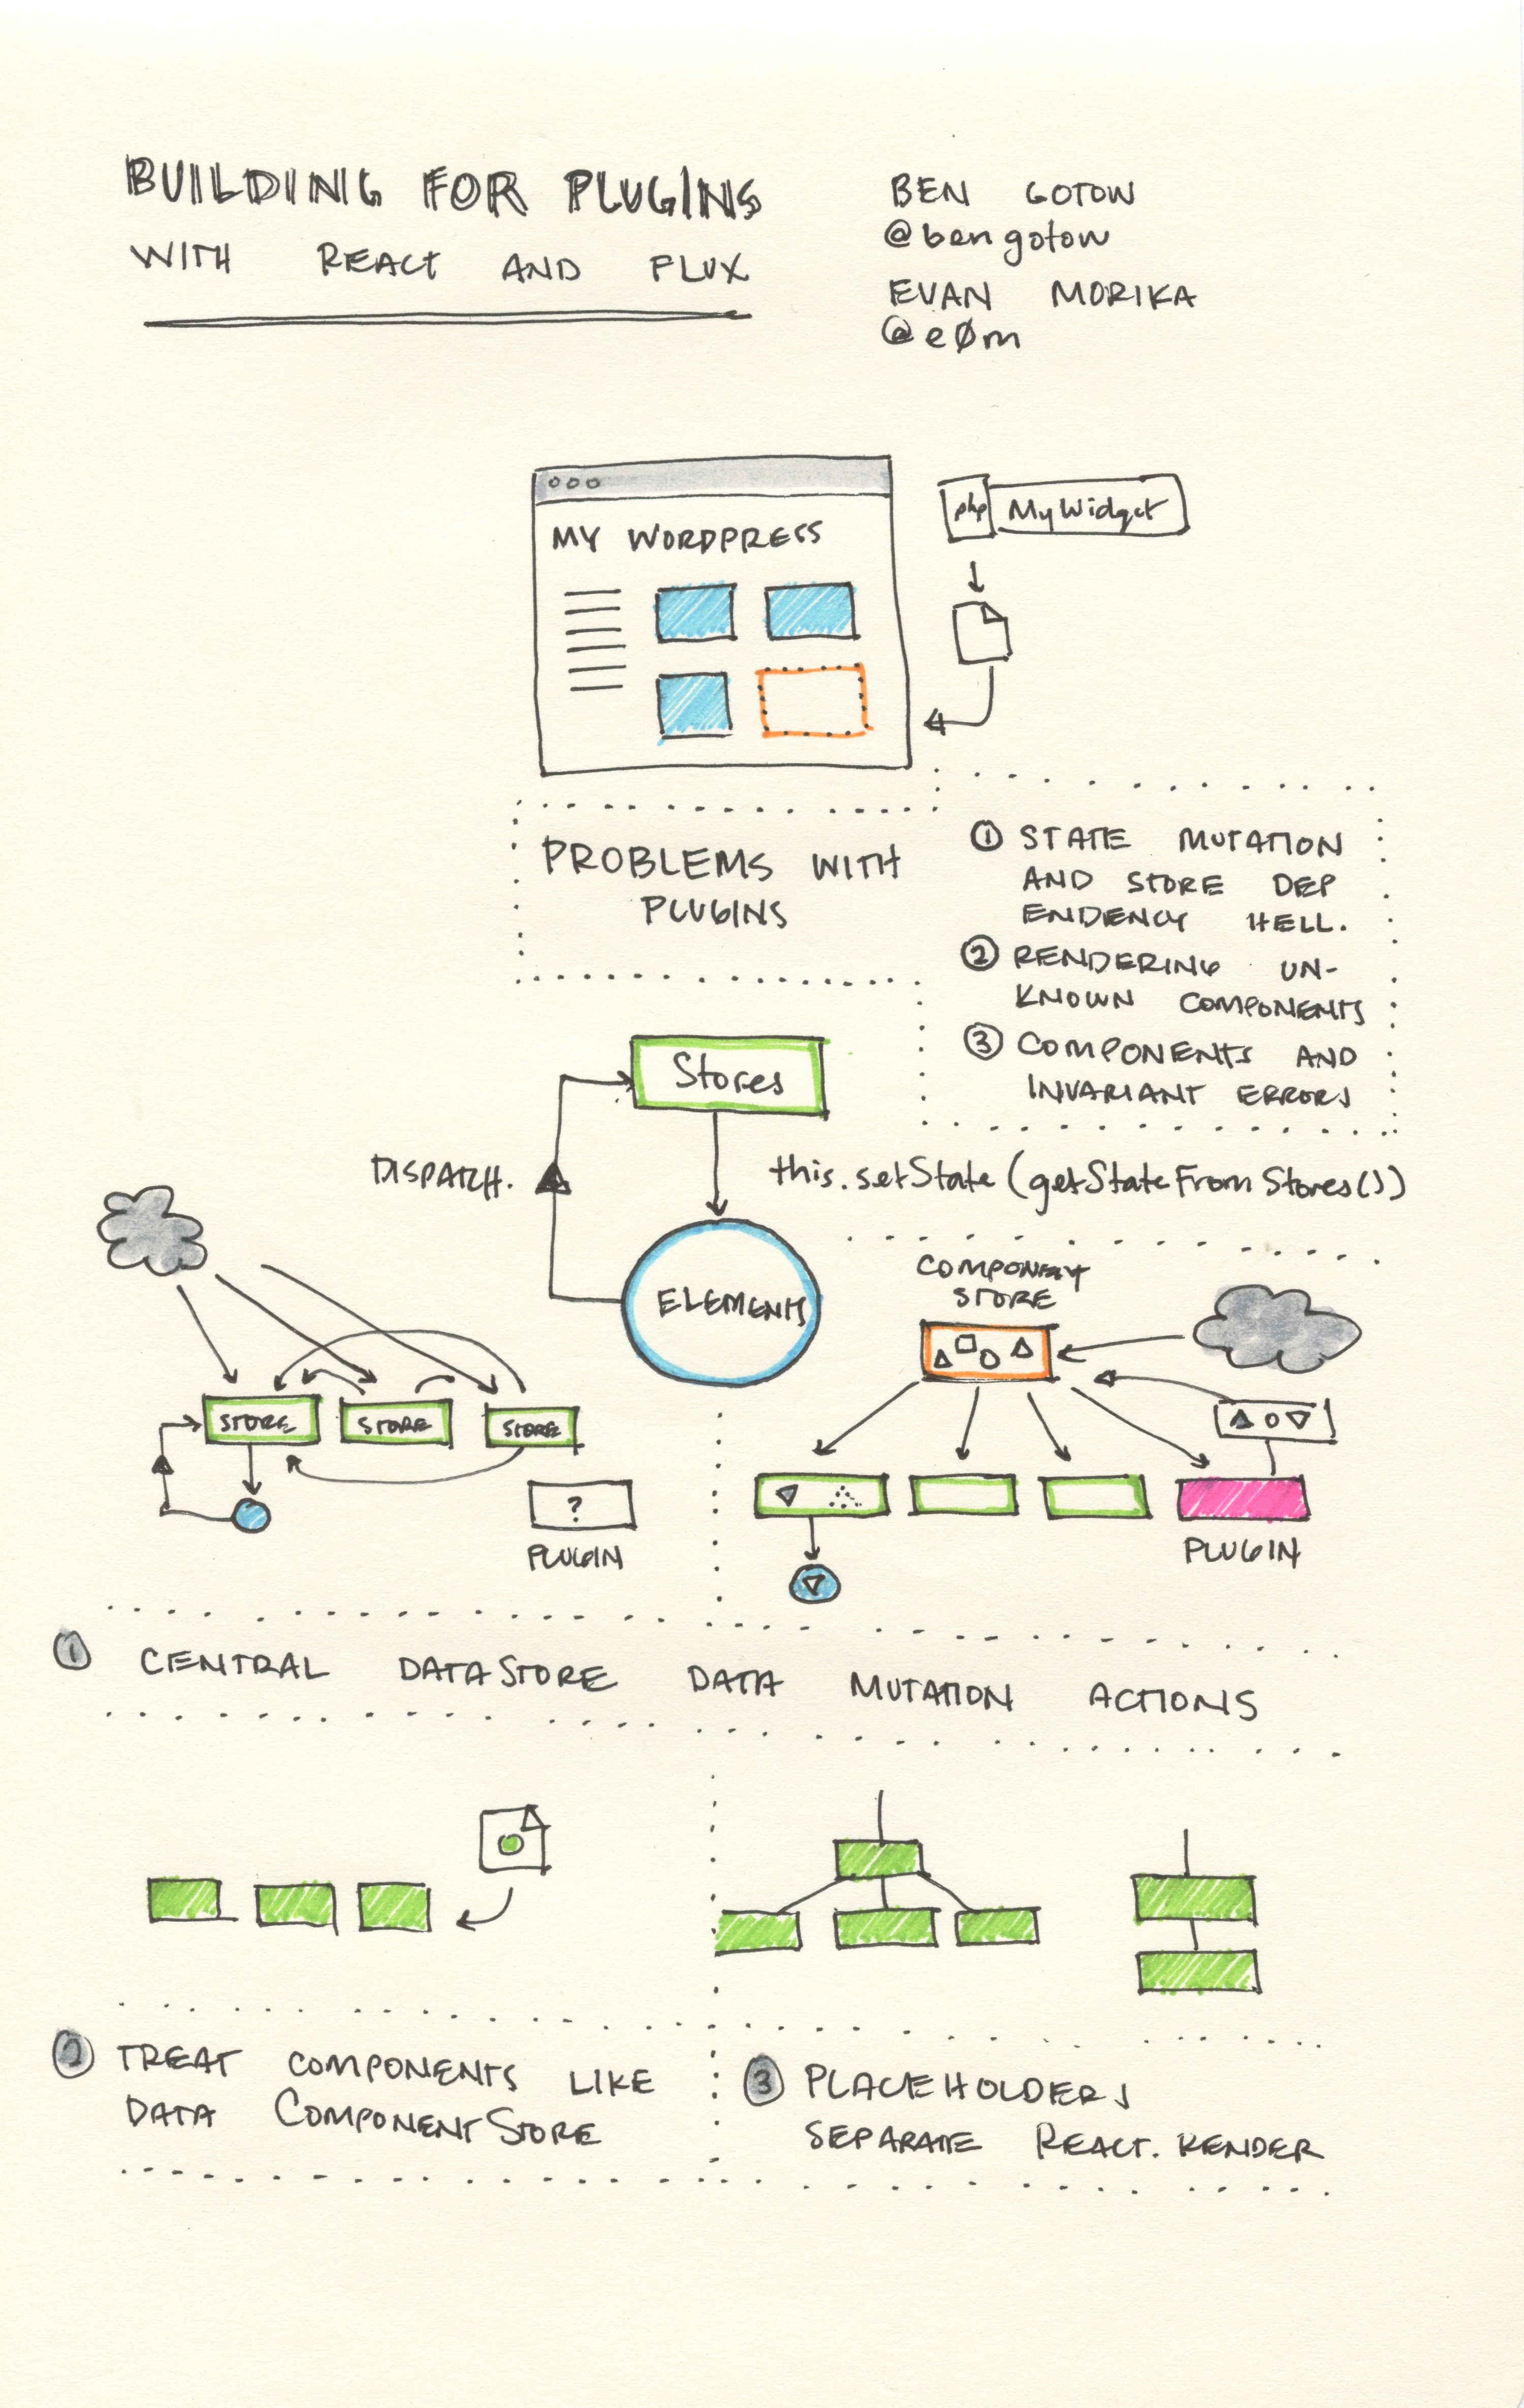 BUILDING FOR PLUGINS
WITH REACT AND FLUX
BEN GOTOW
@bengotow
EVAN MORIKA
@e0m
MY WORDPRESS
php MyWidget
PROBLEMS WITH
PLUGINS
① STATE MUTATION
AND STORE DEP
ENDENCY HELL.
② RENDERING UN-
KNOWN COMPONENTS
③ COMPONENTS AND
INVARIANT ERRORS
Stores
DISPATCH.
this.setState(getStateFromStores())
ELEMENTS
COMPONENT
STORE
STORE STORE STORE
?
PLUGIN
PLUGIN
① CENTRAL DATASTORE DATA MUTATION ACTIONS
② TREAT COMPONENTS LIKE
DATA COMPONENTSTORE
③ PLACEHOLDERS
SEPARATE REACT.RENDER